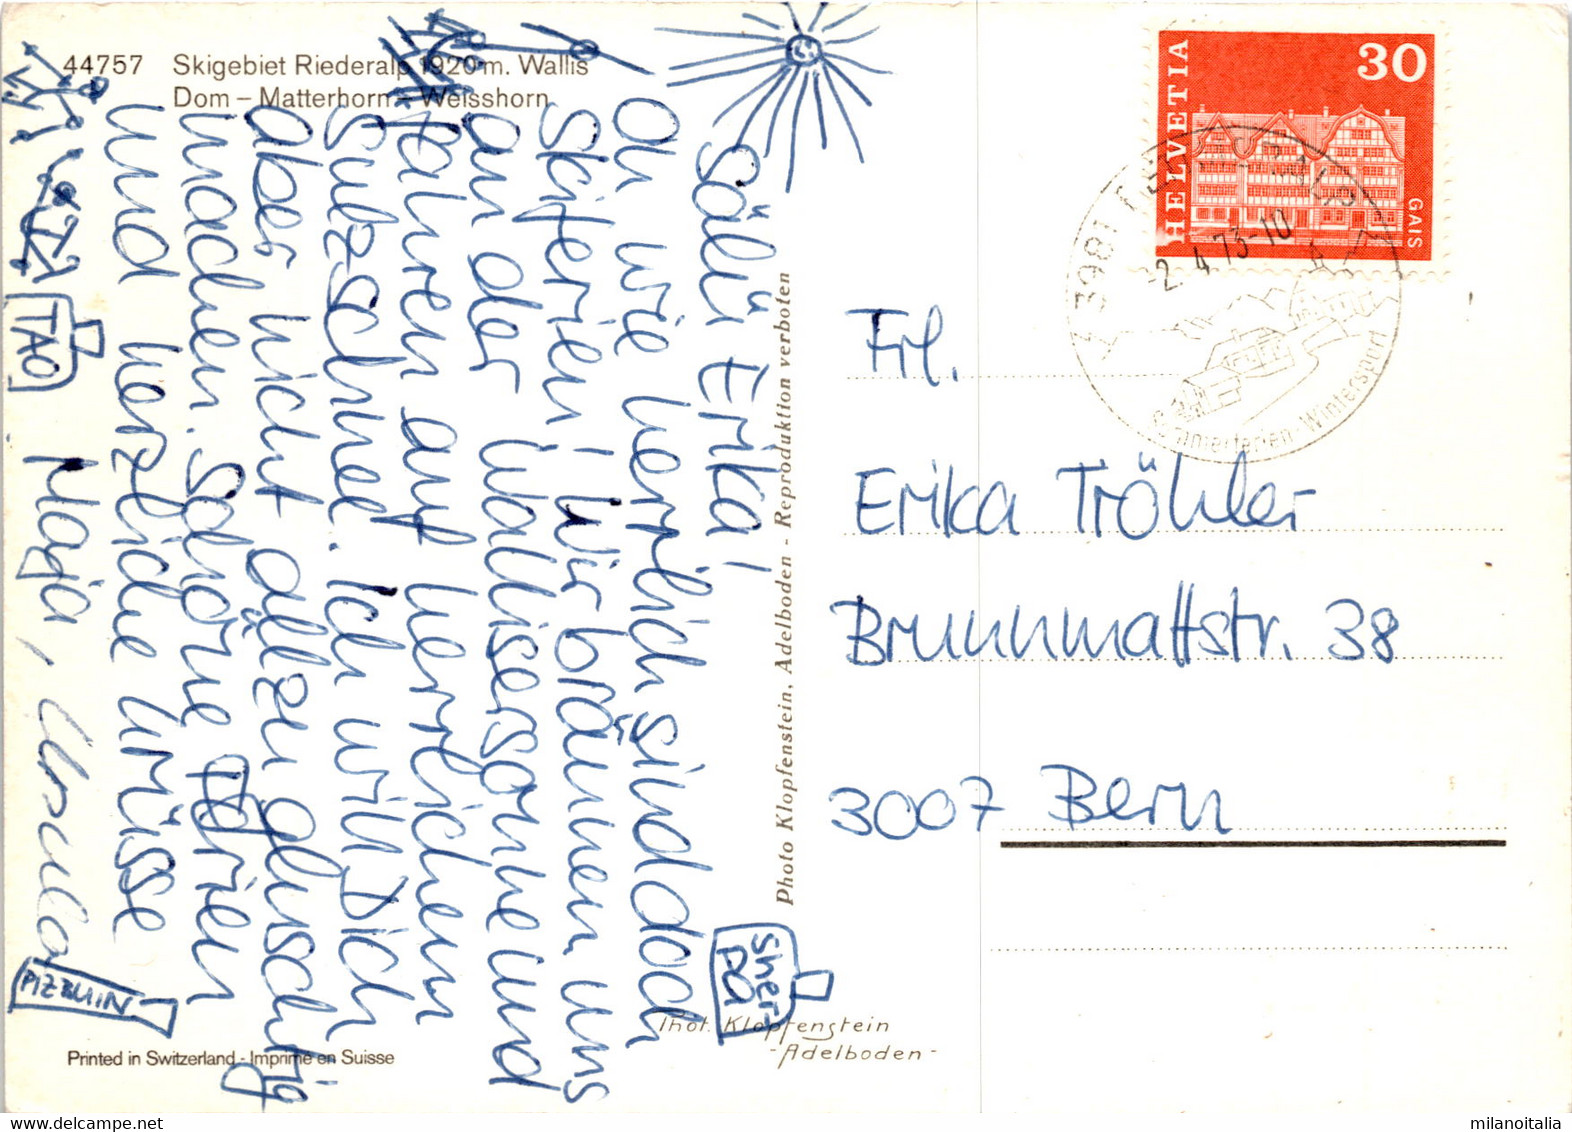 44757 Skigebiet Riederalp 1920 m. Wallis
Dom – Matterhorn – Weisshorn
Salü Erika!
Oh wie herrlich sind doch
Skiferien! Wir bräunen uns
an der Wallisersonne und
fahren auf herrlichem
Sulzschnee. Ich will Dich
aber nicht allzu gluschtig
machen. Schöne Ferien
und herzliche Grüsse
Ursula
TAO
PIZ BUIN
Sher-
pa
Photo Klopfenstein, Adelboden - Reproduktion verboten
Phot. Klopfenstein
- Adelboden -
Printed in Switzerland - Imprimé en Suisse
HELVETIA
30
GAIS
3981 RIEDERALP
-2.4.73-10
Sommerferien-Wintersport
Frl.
Erika Tröhler
Brunnmattstr. 38
3007 Bern
milanoitalia